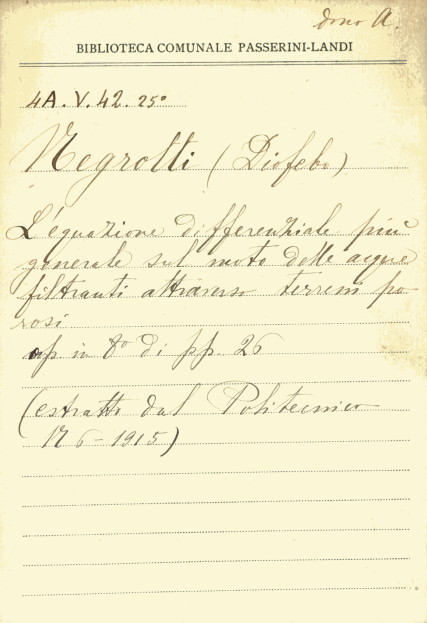 dono A.
BIBLIOTECA COMUNALE PASSERINI-LANDI
4A. V. 42. 25°
Negrotti (Diofebo)
L'equazione differenziale più
generale sul moto delle acque
filtranti attraverso terreni po
rosi
op in 8° di pp. 26
(estratto dal Politecnico
N 6 - 1915)